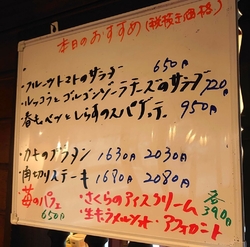 本日のおすすめ(税抜き価格)
・フルーツトマトのサラダ 650
・ルッコラとゴルゴンゾーラチーズのサラダ 720
・春キャベツとしらすのスパゲッティ 950円
・カキのグラタン 1630円 2030円
・角切りステーキ 1690円 2080円
苺のパフェ 650円
・さくらのアイスクリーム 各390円
・生キャラメルソフト・アフォガート